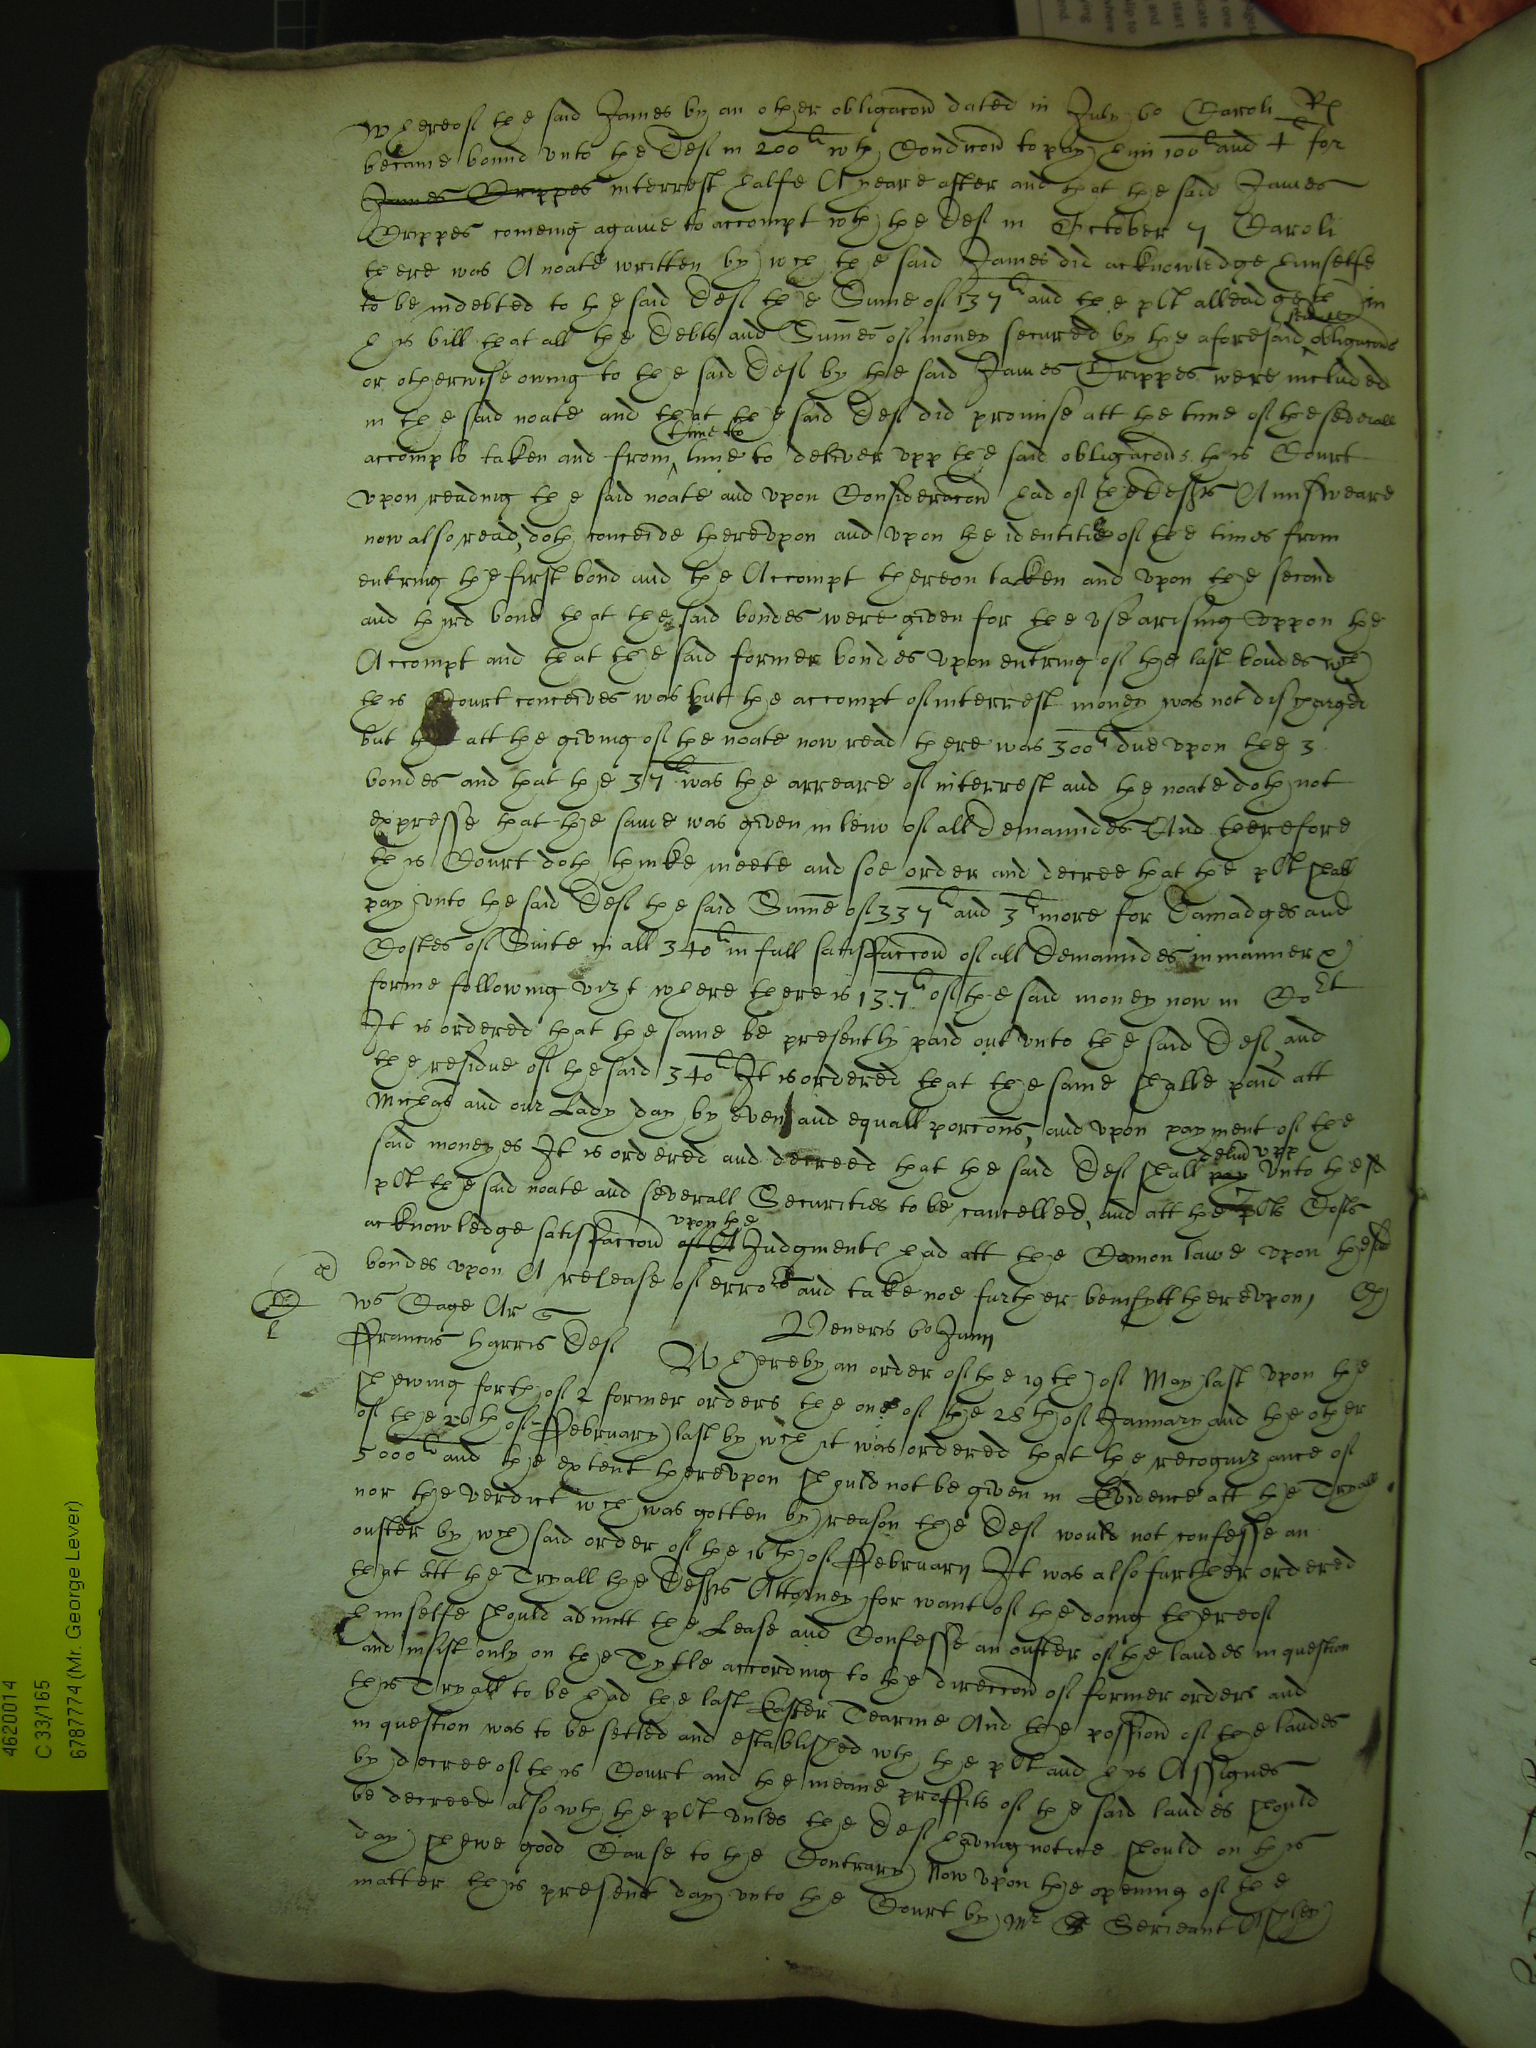 whereof the said James by an other obligacon dated in July 6o Caroli Rs
became bound vnto the Deft in 200li wth Condicon to pay him 100li and 4li for
James Crippes interrest halfe A yeare after and that the said James
Crippes comeing againe to accompt wth the Deft in October 7 Caroli
there was A noate written by wch the said James did acknowledge himselfe
to be indebted to the said Deft the Sume of 137li and the plt alleadgeth in
his bill that all the Debts and Sumes of money secured by the aforesaid obligacons
or otherwise owing to the said Deft by the said James Crippes were included
in the said noate and that the said Deft did promise att the time of the severall
time to
accompts taken and from time to deliver vpp the said obligacons this Court
vpon reading the said noate and vpon Consideracon had of the Defts Aunsweare
now also read, doth conceive therevpon and vpon the identitie of the times from
entring the first bond and the Accompt thereon taken and vpon the second
and third bond that the said bondes were given for the vse arising vppon the
Accompt and that the said former bondes vpon entring of the last bondes wch
this Court conceives was but the accompt of interrest money was not discharged
but att the giving of the noate now read there was 300li due vpon the 3
bondes and that the 37li was the arreare of interrest and the noate doth not
expresse that the same was given in leiw of all Demaundes And therefore
this Court doth thinke meete and soe order and decree that the plt shall
pay vnto the said Deft the said Sume of 337li and 3li more for Damadges and
Costes of Suite in all 340li in full satisfaccon of all Demaundes in manner &
forme following vizt where there is 137li of the said money now in Cort
It is ordered that the same be presently paid out vnto the said Deft, and
the residue of the said 340li It is ordered that the same shalbe paid att
Michas and our Lady day by even and equall porcons, and vpon payment of the
said moneyes It is ordered and decreed that the said Deft shall pay vnto the sd
delivr vpp
plt the said noate and severall Securities to be cancelled, and att the plts Costs
vpon the
acknowledge satisfaccon of A Judgmentt had att the Comon lawe vpon the sd
bondes vpon A release of errors and take noe further benifytt therevpon,
Wm Cage Ar
ffrauncis Harris Deft
Veneris 6o Junij
Whereby an order of the 19th of May last vpon the
shewing forth of 2 former orders the one of the 28th of January and the other
of the 26th of ffebruary last by wch it was ordered that the recognizance of
5000li and the extent therevpon should not be given in Evidence att the Tryall
nor the verdict wch was gotten by reason the Deft would not confesse an
ouster by wch said order of the 16th of ffebruary It was also further ordered
that att the Tryall the Defts Attorney for want of the doing thereof
himselfe should admitt the Lease and Confesse an ouster of the landes in question
and insist only on the Tytle according to the direccon of former orders and
this Tryall to be had the last Easter Tearme And the possion of the landes
in question was to be setled and established wth the plt and his Assignes
by decree of this Court and the meane proffits of the said landes should
be decreed also wth the plt vnles the Deft having notice should on this
day shewe good Cause to the Contrary Now vpon the opening of the
matter this present day vnto the Court by Mr Serieant Ashley
4620014
C 33/165
6787774 (Mr. George Lever)